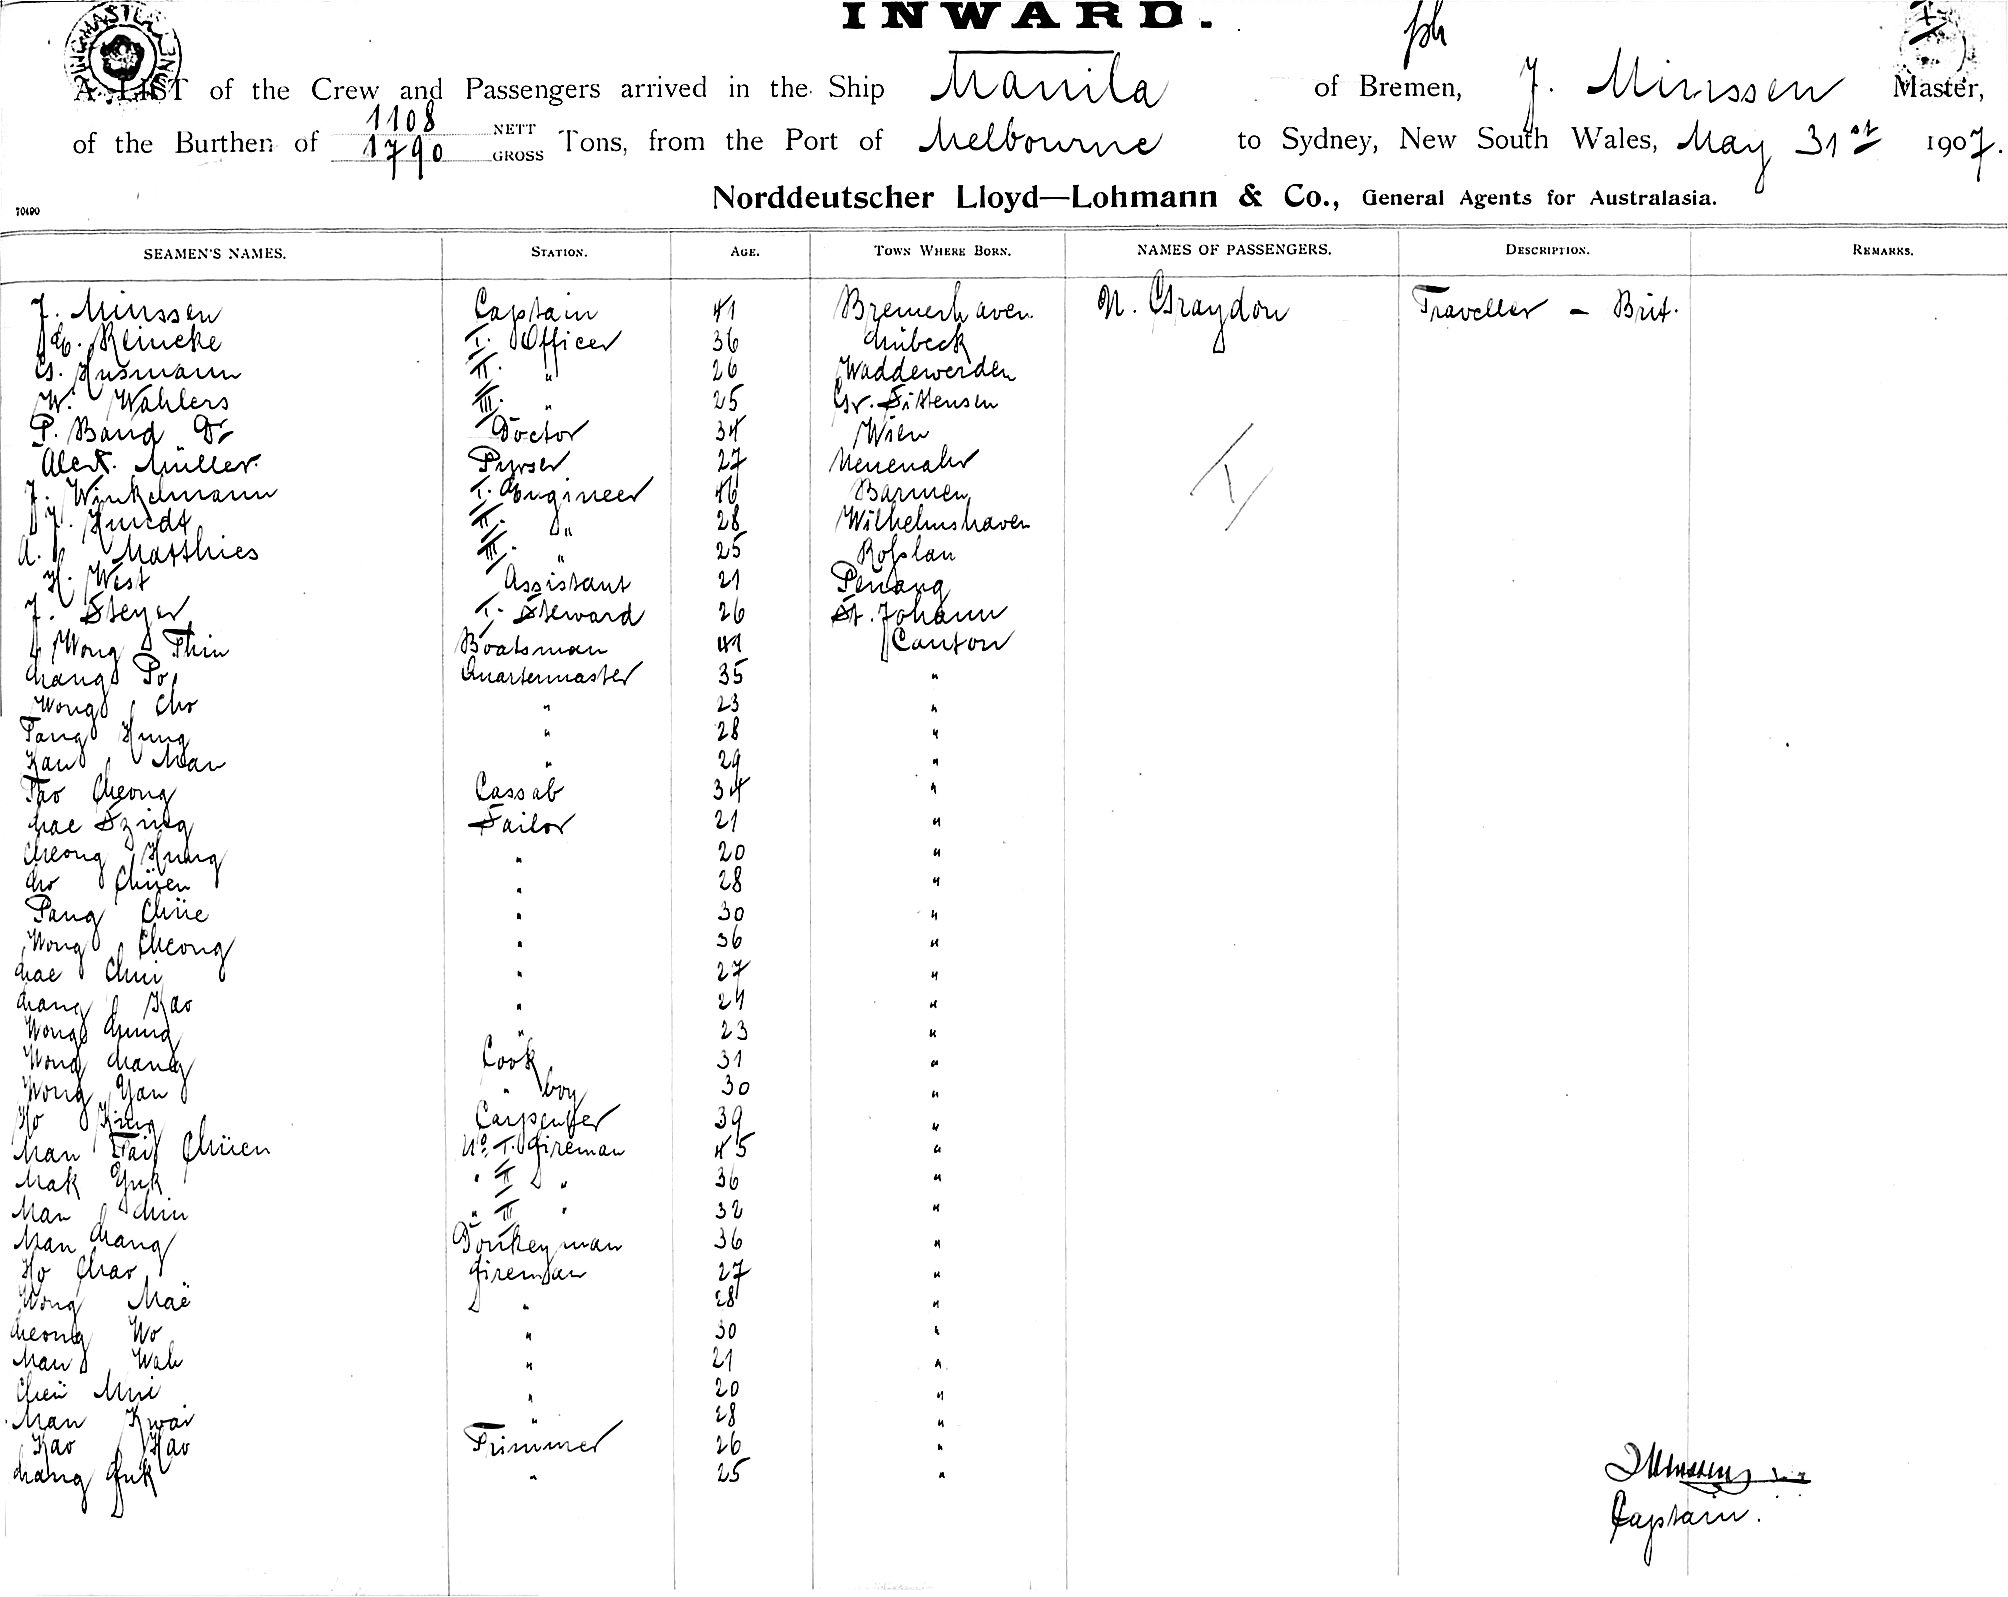 INWARD.
A LIST of the Crew and Passengers arrived in the Ship Manila of Bremen, J. Minssen Master,
of the Burthen of 1108 NETT 1790 GROSS Tons, from the Port of Melbourne to Sydney, New South Wales, May 31st 1907.
Norddeutscher Lloyd—Lohmann & Co., General Agents for Australasia.
70490
SEAMEN'S NAMES. STATION. AGE. TOWN WHERE BORN. NAMES OF PASSENGERS. DESCRIPTION. REMARKS.
J. Minssen Captain 41 Bremerhaven N. Graydon Traveller - Brit.
Reincke I. Officer 36 Lübeck
G. Husmann II. " 26 Waddewerden
W. Wahlers III. " 25 Gr. Sittensen
P. Band Dr Doctor 34 Wien
Alex. Müller. Purser 27 Neuenahr
J. Winkelmann I. Engineer 46 Barmen
J. Hundt II. " 28 Wilhelmshaven
A. Matthies III. " 25 Roßlau
H. West Assistant 21 Penang
J. Steyer I. Steward 26 St. Johann
Wong Thin Boatsman 41 Canton
Chang Po Quartermaster 35 "
Wong Cho " 23 "
Tang Hung " 28 "
Kau Man " 29 "
Tao Cheong Cassab 34 "
Sailor 21 "
Cheong Hung " 20 "
Cho Chüen " 28 "
Pang Chüe " 30 "
Wong Cheong " 36 "
Chae Chui " 27 "
Chang Kao " 24 "
Wong Chung " 23 "
Wong Chang Cook 31 "
Wong Yau " boy 30 "
Ho King Carpenter 39 "
Man Tai Chüen No. I. Fireman 45 "
Mak Yuk " II " 36 "
Man Chin " III " 32 "
Man Chang Donkeyman 36 "
Ho Chao Fireman 27 "
Wong Maë " 28 "
Cheong Wo " 30 "
Man Wah " 21 "
Cheü Mui " 20 "
Man Kwai " 28 "
Kao Hao Trimmer 26 "
Chang Fuk " 25 "
J Minssen
Captain.